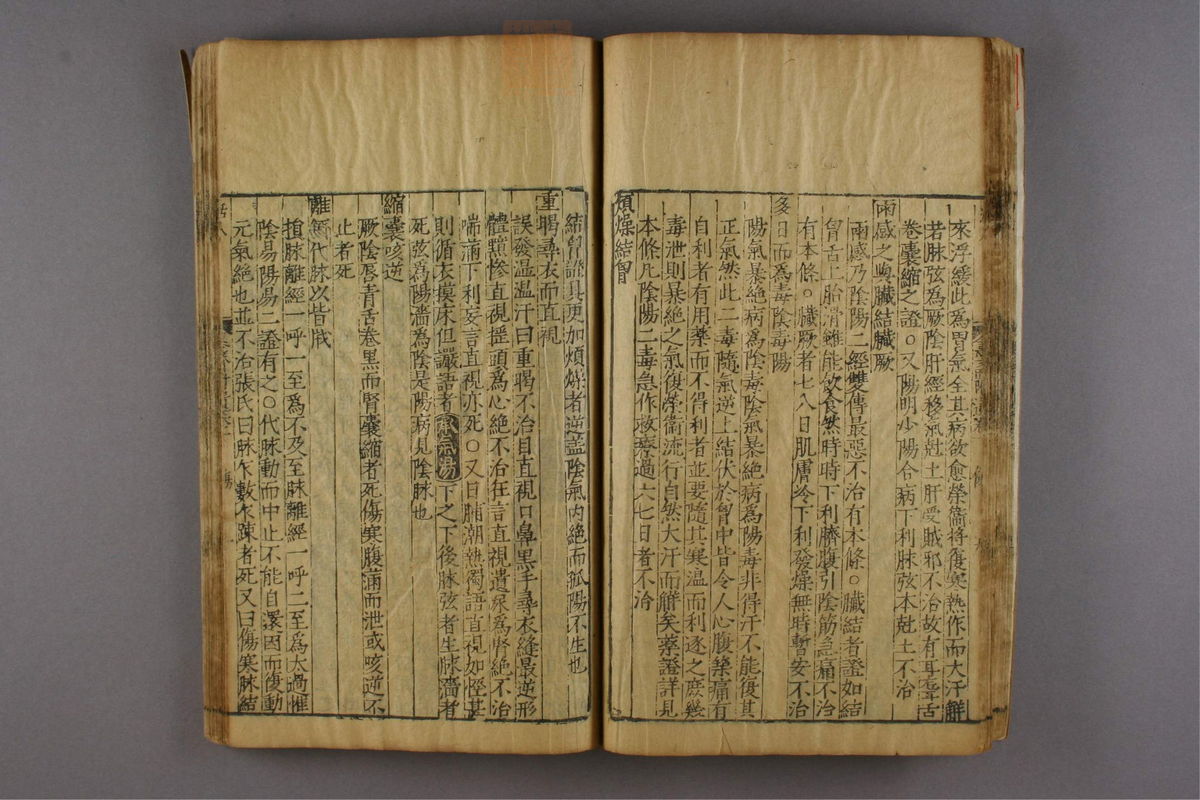 來浮緩此為胃氣全其病欲愈榮衛將復寒熱作而大汗解
若脉弦為厥陰肝經移氣尅土肝受賊邪不治故有耳聾舌
卷囊縮之證○又陽明少陽合病下利脉弦本尅土不治
兩感之與臟結臟厥
兩感乃陰陽二經雙傳最惡不治有本條○臟結者證如結
胷舌上胎滑雖能飲食然時時下利臍腹引陰筋急痛不治
有本條○臟厥者七八日肌膚冷下利發燥無時暫安不治
多日而為毒陰毒陽
陽氣暴絶病為陰毒陰氣暴絶病為陽毒非得汗不能復其
正氣然此二毒隨氣逆上結伏於胷中皆令人心腹築痛有
自利者有用藥而不得利者並要隨其寒温而利逐之庶幾
毒泄則暴絶之氣復榮衛流行自然大汗而觧矣藥證詳見
本條凡陰陽二毒急作救療過六七日者不治
煩燥結胷
結胷證具更加煩燥者逆蓋陰氣内絶而孤陽不生也
重暍尋衣而直視
誤發温温汗曰重暍不治目直視口鼻黒手尋衣縫最逆形
體黑慘直視揺頭為心絶不治狂言直視遺尿為腎絶不治
喘滿下利妄言直視亦死○又日晡潮熱獨語直視如
則循衣摸床但讝語者承氣湯下之下後脉弦者生脉濇者
死弦為陽濇為陰是陽病見陰脉也
縮囊咳逆
厥陰唇青舌卷黑而腎囊縮者死傷寒腹滿而泄或咳逆不
止者死
離經代脉以皆戕
損脉離經一呼一至為不及至脉離經一呼二至為太過惟
陰陽陽易二證有之○代脉動而中止不能自還因而復動
元氣絶也並不治張氏曰脉乍數乍踈者死又曰傷寒脉結